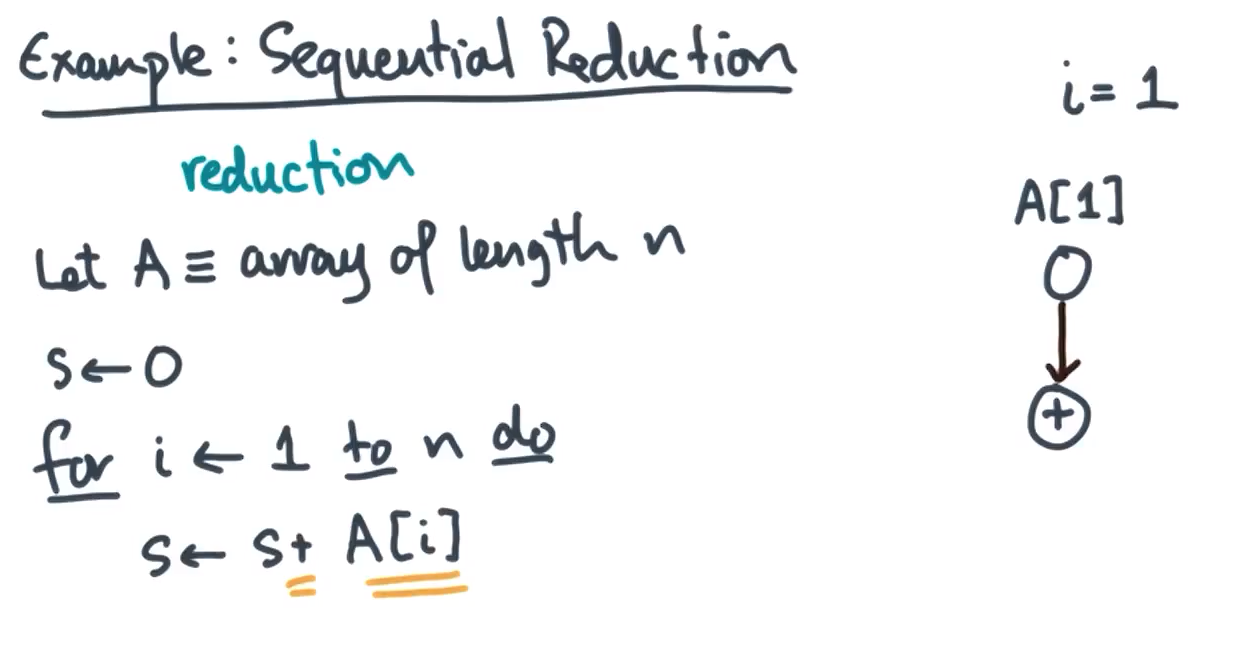 Example: Sequential Reduction
reduction
Let A ≡ array of length n
s ← 0
for i ← 1 to n do
s ← s + A[i]
i = 1
A[1]
+